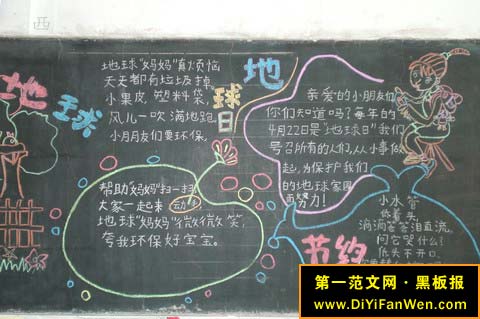 西
地球
地球日
地球"妈妈"真烦恼
天天都有垃圾掉,
小果皮,塑料袋,
风儿一吹满地跑
小朋友们要环保。
帮助妈妈"扫一扫"
大家一起来动
地球"妈妈"微微笑,
夸我环保好宝宝。
亲爱的小朋友们
你们知道吗?每年的
4月22日是"地球日"我们
号召所有的人们,从小事做
起,为保护我们
的地球家园
而努力!
节约
小水管
低着头,
滴滴答答泪直流,
问它哭什么!
低头不开口,
第一范文网·黑板报
www.DiYiFanWen.com